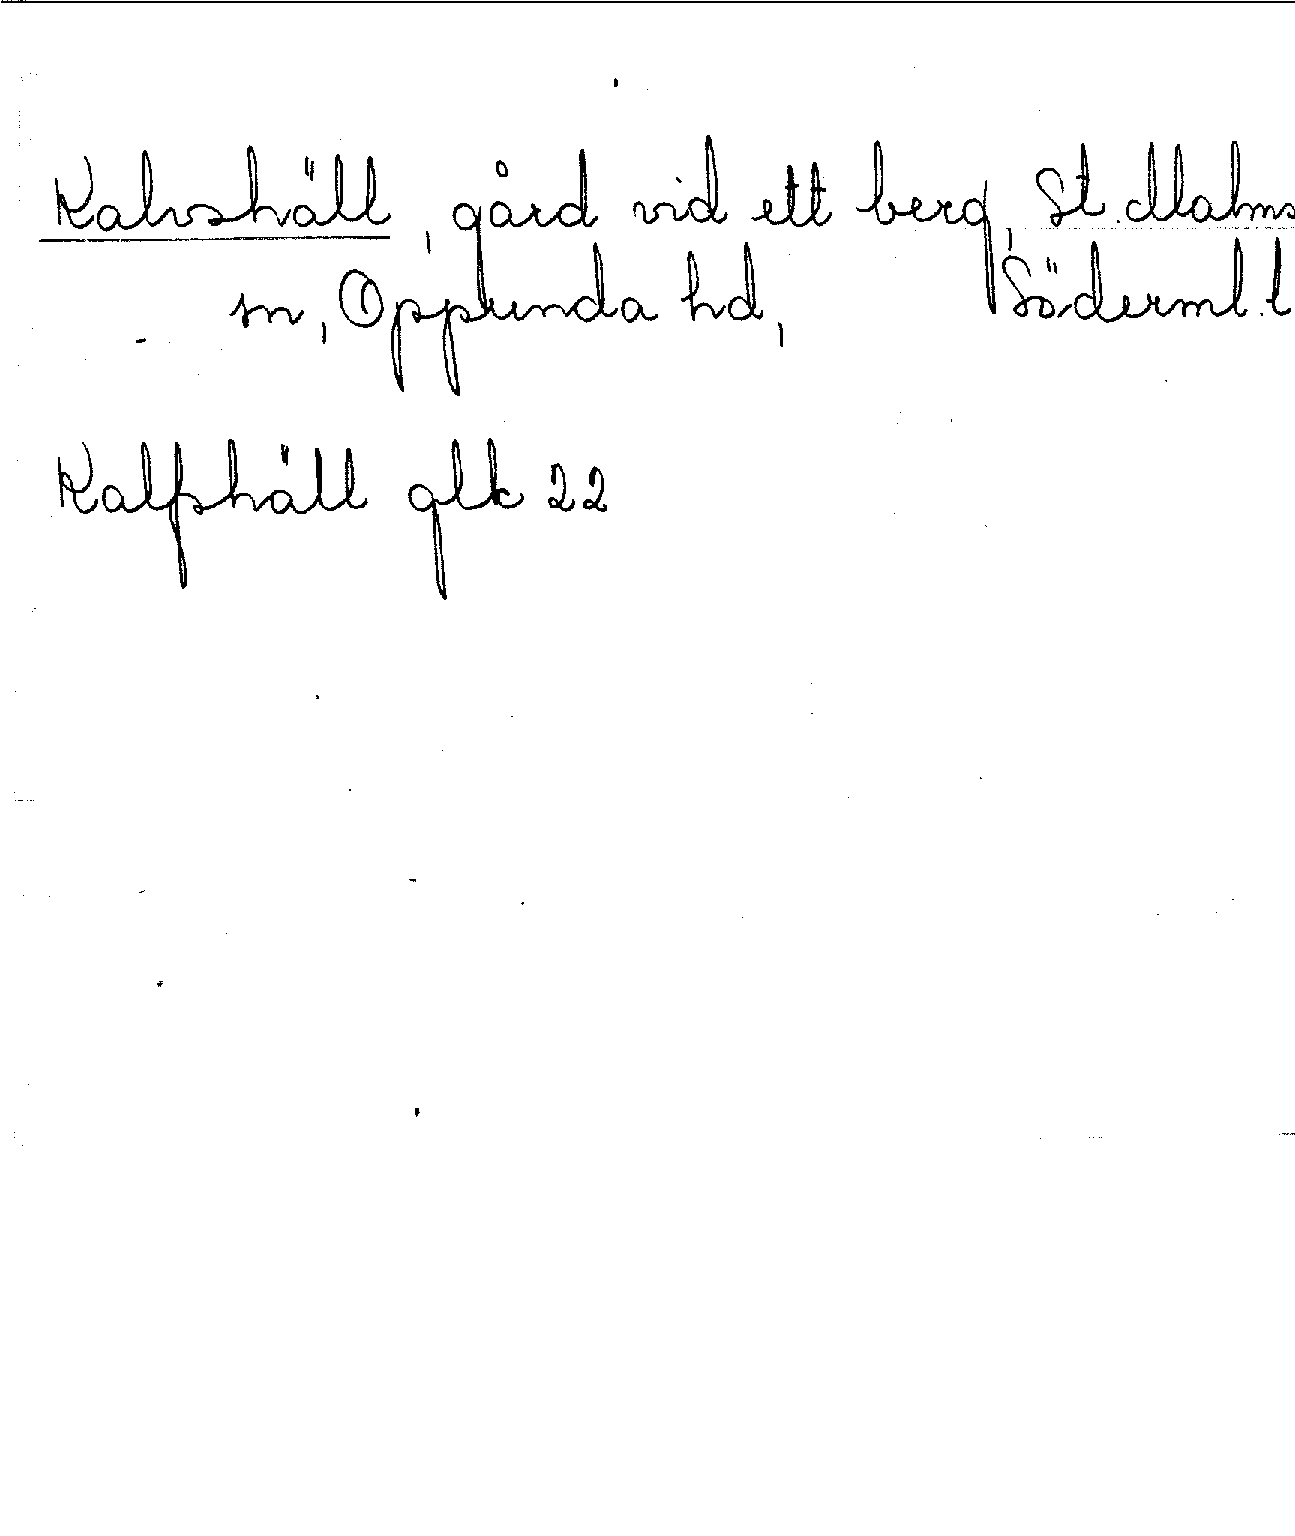 Kalvshäll, gård vid ett berg, St. Malms
sn, Oppunda hd, Söderml. l
Kalfshäll glk 22